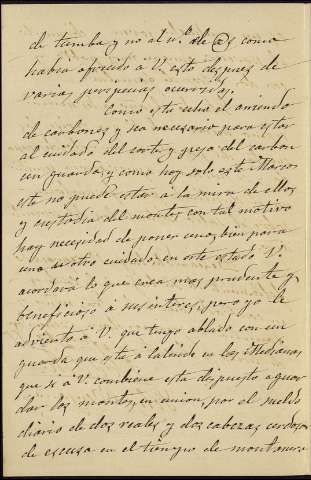 de tumba y no al n.º de @s como
habia ofrecido á V. esto despues de
varias peripecias ocurridas.
Como esta cubre el arriendo
de carbones y sea necesario para estar
al cuidado del corte y peso del carbon
un guarda, y como hoy solo esta Marcos
este no puede estar á la mira de ellos
y custodia del monte, con tal motivo
hay necesidad de poner uno, bien para
uno ú otro cuidado; en este estado V.
acordará lo que crea mas prudente y
beneficioso á sus interes, pero yo le
advierto á V. que tengo ablado con un
guarda que está en los Medianos,
que si á V. combiene esta dispuesto á guar
dar los montes, en union, por el sueldo
diario de dos reales y dos cabezas cerdosas
de escusa en el tiempo de montanera